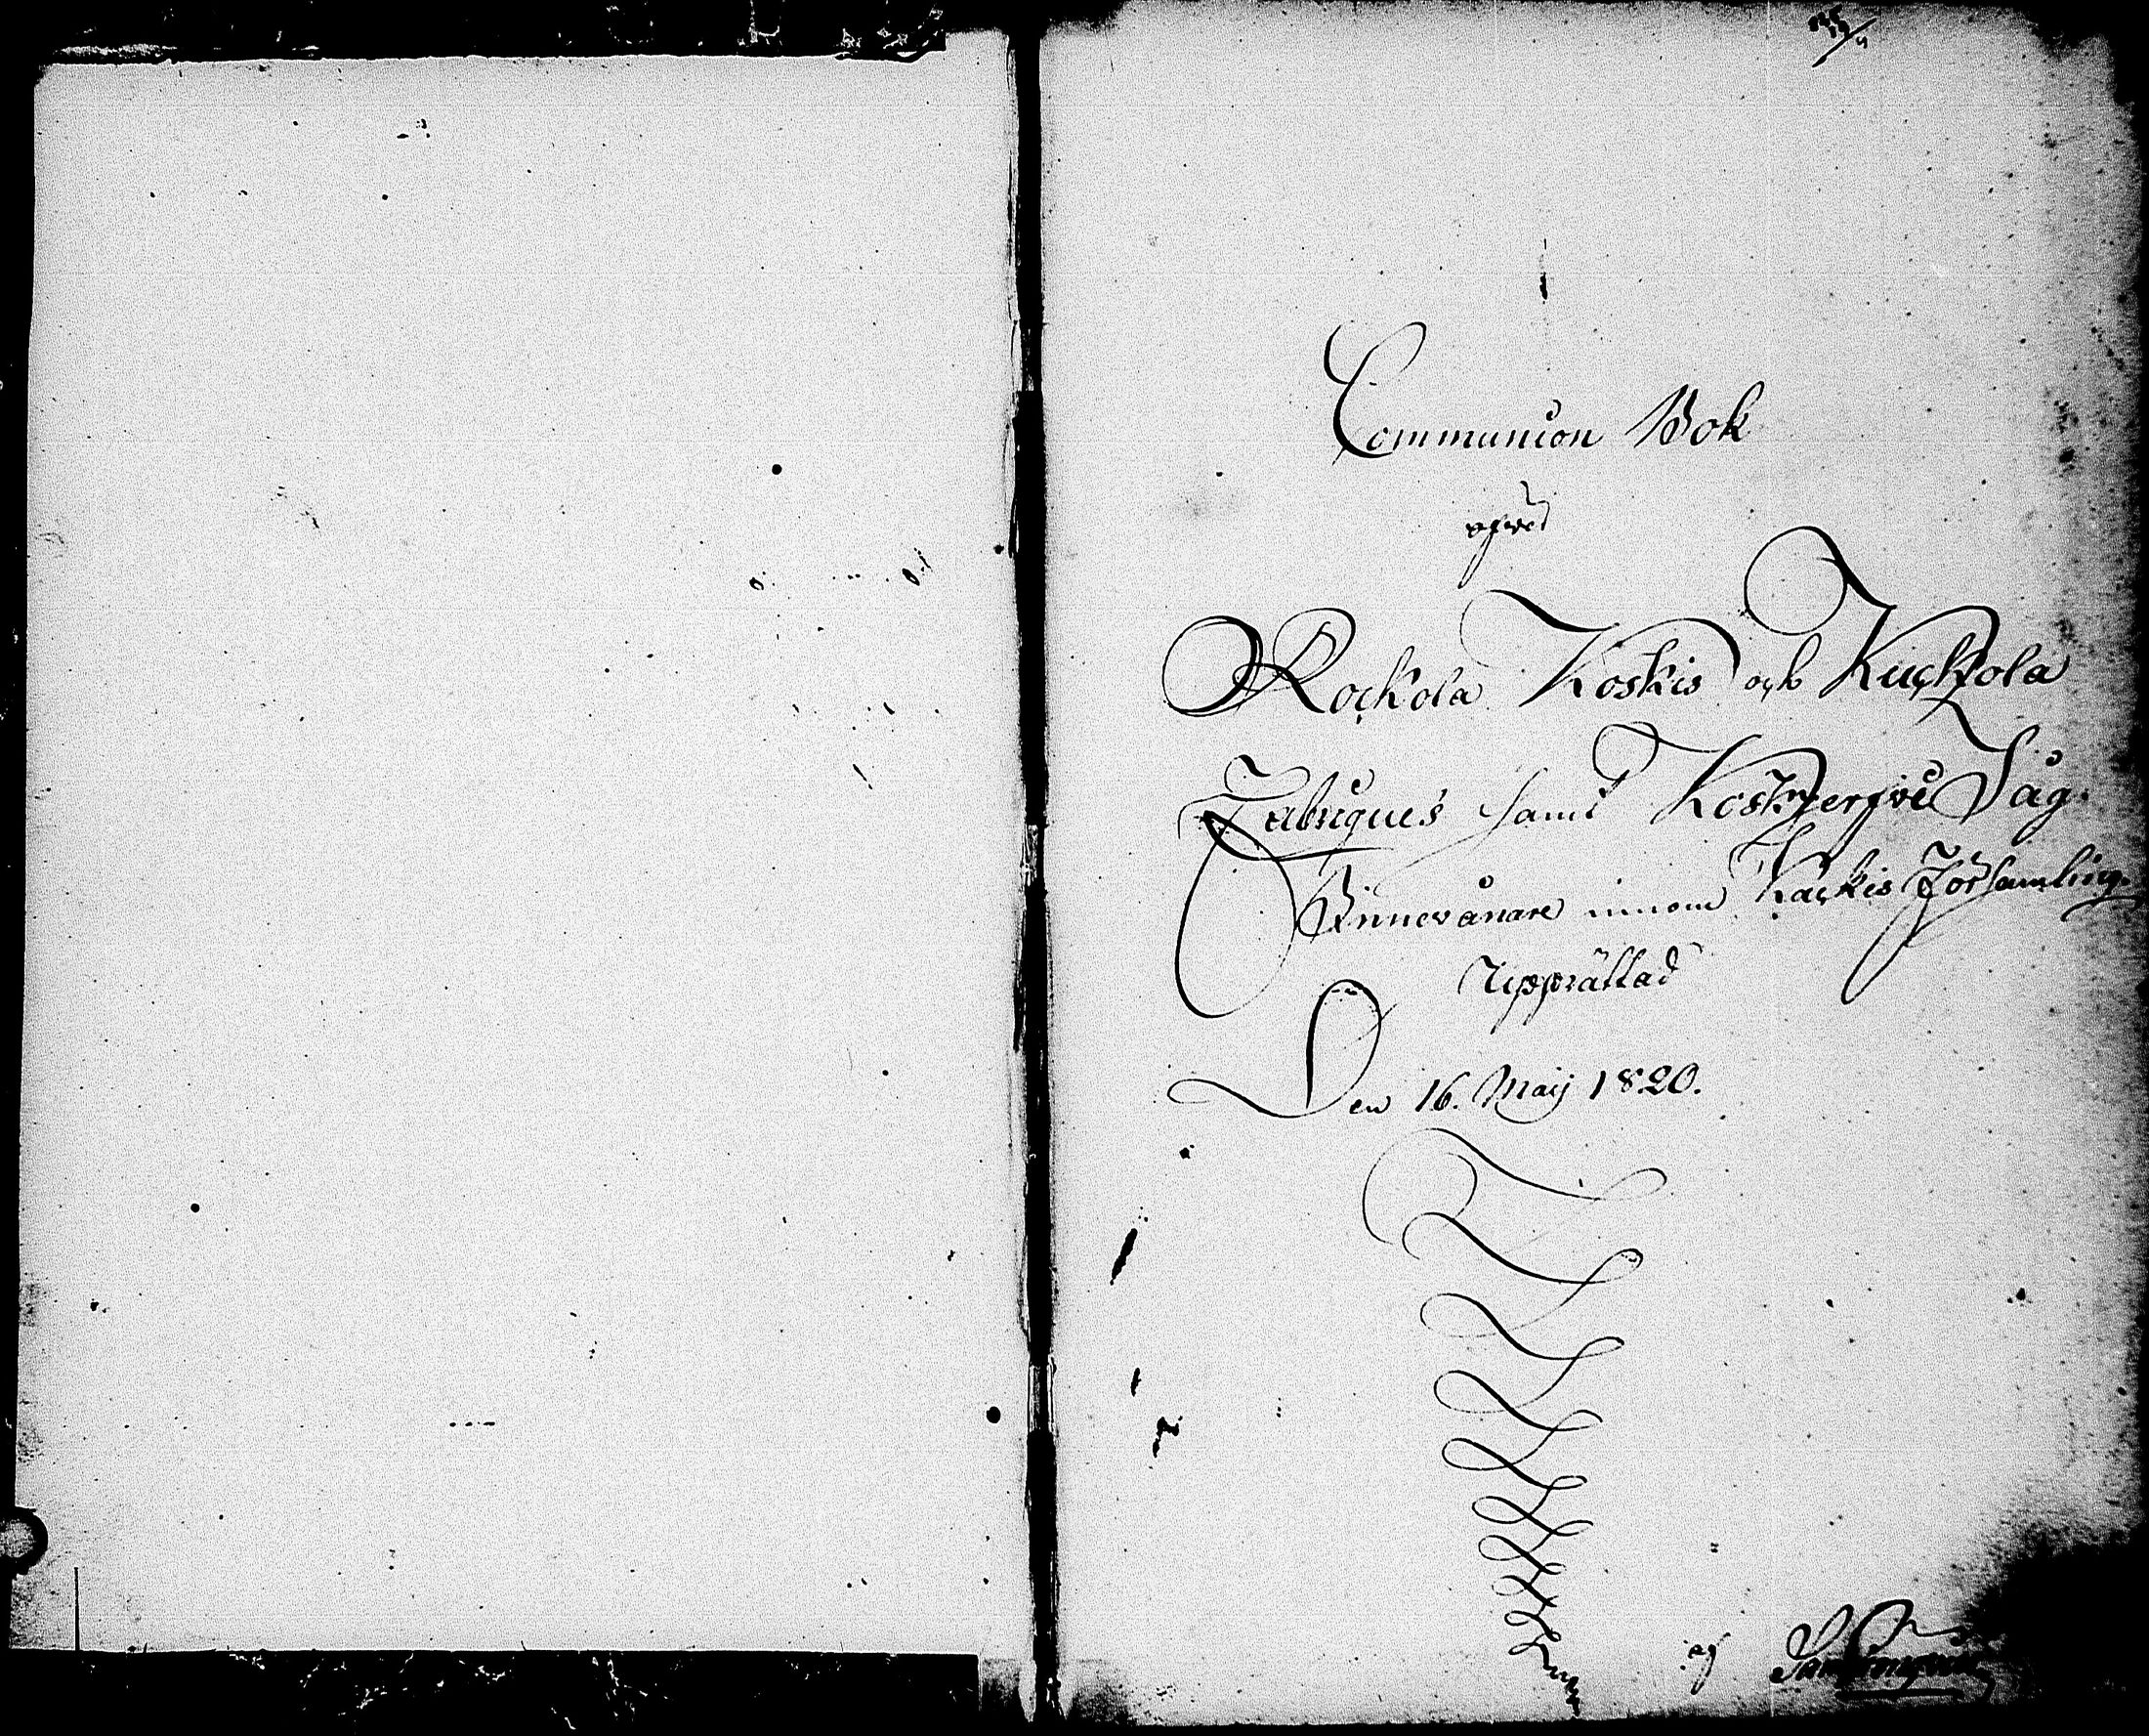 Communion Bok
öfver
Rockola Koskis och Kuckola
Fabriques samt Koskjerfvi Såg.
Innevånare innom Kackis Församling.
Upprättad
Den 16. Maij 1820.
af